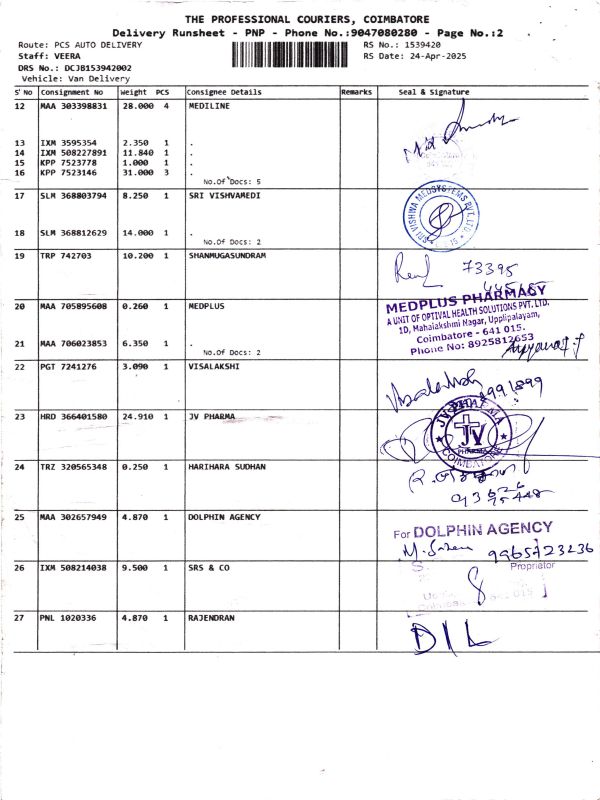 THE PROFESSIONAL COURIERS, COIMBATORE
Delivery Runsheet - PNP - Phone No.:9047080280 - Page No.:2
Route: PCS AUTO DELIVERY RS No.: 1539420
Staff: VEERA RS Date: 24-Apr-2025
DRS No.: DCJB153942002
Vehicle: Van Delivery
S' No Consignment No Weight PCS Consignee Details Remarks Seal & Signature
12 MAA 303398831 28.000 4 MEDILINE
13 IXM 3595354 2.350 1 .
14 IXM 508227891 11.840 1 .
15 KPP 7523778 1.000 1 .
16 KPP 7523146 31.000 3 .
No.Of Docs: 5
17 SLM 368803794 8.250 1 SRI VISHVAMEDI
SRI VISHWA MEDSYSTEMS PVT.LTD.
18 SLM 368812629 14.000 1 .
No.Of Docs: 2
19 TRP 742703 10.200 1 SHANMUGASUNDRAM
73395
20 MAA 705895608 0.260 1 MEDPLUS
MEDPLUS PHARMACY
A UNIT OF OPTIVAL HEALTH SOLUTIONS PVT. LTD.
1D, Mahalakshmi Nagar, Upplipalayam,
Coimbatore - 641 015.
Phone No: 8925812653
21 MAA 706023853 6.350 1 .
No.Of Docs: 2
22 PGT 7241276 3.090 1 VISALAKSHI
Visalakshi
23 HRD 366401580 24.910 1 JV PHARMA
JV PHARMA
JV
PHARMA
COIMBATORE
24 TRZ 320565348 0.250 1 HARIHARA SUDHAN
25 MAA 302657949 4.870 1 DOLPHIN AGENCY
For DOLPHIN AGENCY
9965723236
Proprietor
26 IXM 508214038 9.500 1 SRS & CO
27 PNL 1020336 4.870 1 RAJENDRAN